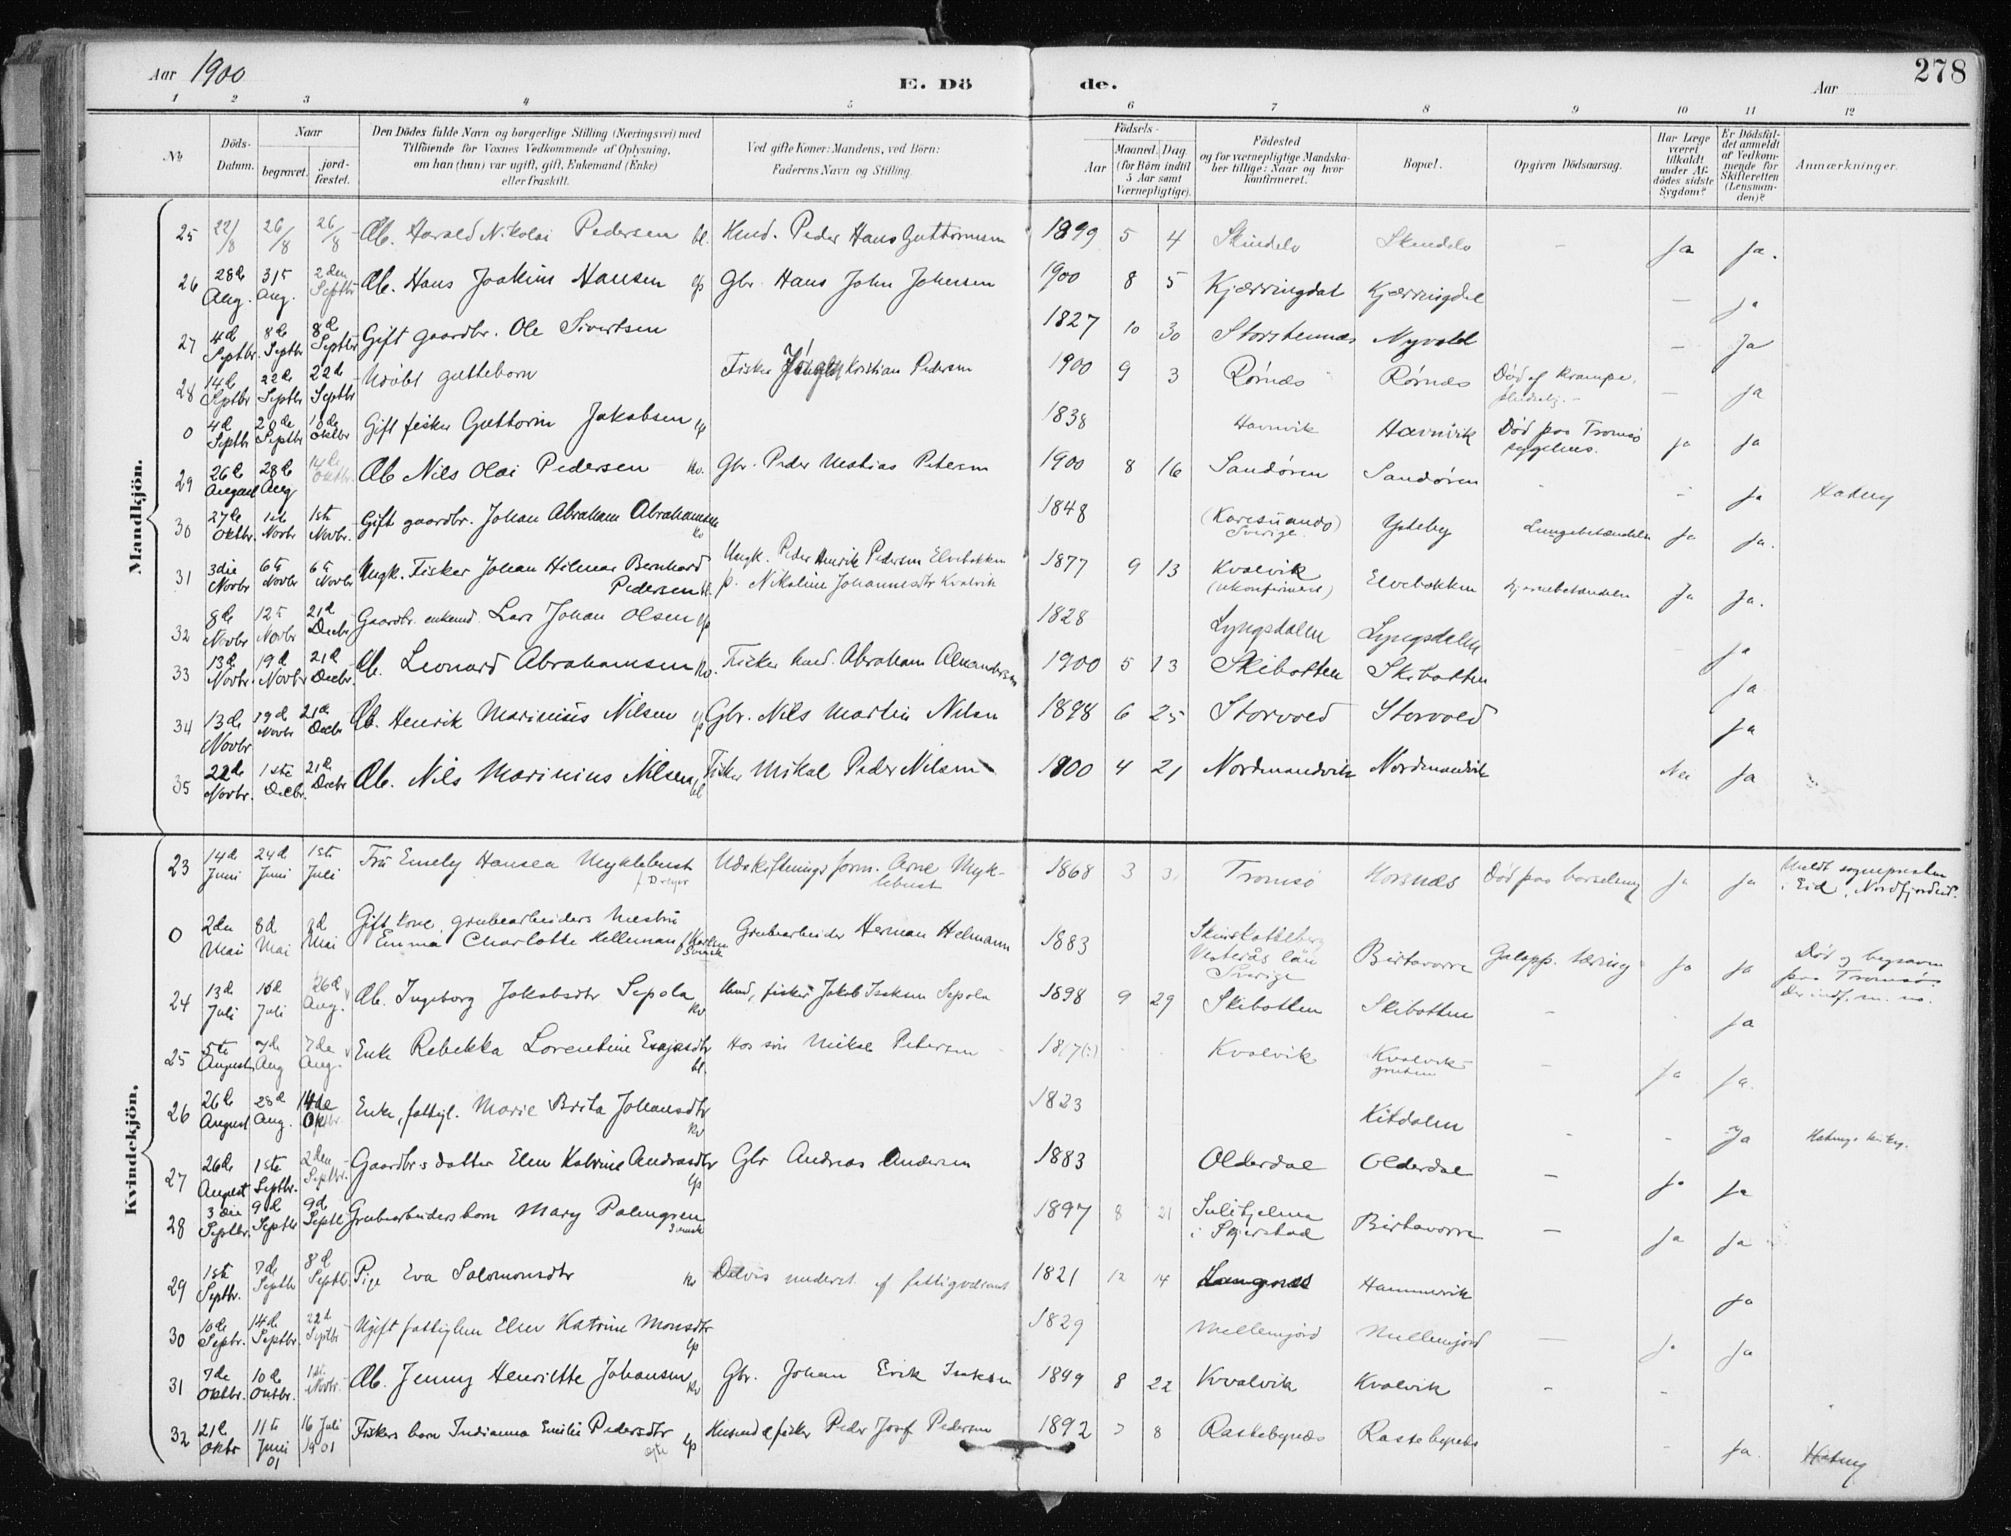 Aar 1900 E. Döde. Aar 278
1 2 3 4 5 6 7 8 9 10 11 12
№ Döds-Datum. Naar begravet. jord-fæstet. Den Dödes fulde Navn og borgerlige Stilling (Næringsvei) med Tilföiende for Voxnes Vedkommende af Oplysning, om han (hun) var ugift, gift, Enkemand (Enke) eller fraskilt. Ved gifte Koner: Mandens, ved Börn: Faderens Navn og Stilling. Födsels- Aar Maaned. Dag. (for Börn indtil 5 Aar samt Værnepligtige). Födested og for værnepligtige Mandskaber tillige: Naar og hvor konfirmeret. Bopæl. Opgiven Dödsaarsag. Har Læge været tilkaldt under Afdödes sidste Sygdom? Er Dödsfaldet anmeldt af Vedkommende for Skifteretten (Lensmanden)? Anmærkninger.
Mandkjön.
25 22/8 26/8 26/8 Harald Nikolai Pedersen bl. Hmd. Peder Hans Guttormsen 1899 5 4 Skindelv Skindelv - Ja Ja.
26 28de Aug. 31te Aug. 2den Septbr Hans Joakim Hansen Gbr. Hans John Johnsen 1900 8 5 Kjærringdal Kjærringdal - Ja
27 4de Septbr. 8de Septbr 8de Septbr Gift gaardbr. Ole Sivertsen 1827 10 30 Storstennæs Nyvold - Ja
28 14de Sptbr 22de Septbr 22de Septbr Udøbt guttebarn Fisker Kristian Pedersen 1900 9 3 Rørnæs Rørnæs Død af Krampe. - Ja
0 4de Septbr 20de Septbr 18de Oktbr Gift fisker Guttorm Jakobsen 1838 Havnvik Havnvik Død paa Tromsø sygehus. Ja Ja
29 26de August 28de Aug 14de Oktbr. Nils Olai Pedersen Kv. Gbr. Peder Mathias Petersen 1900 8 16 Sandøren Sandøren - - Ja Hatteng
30 27de Oktbr. 1ste Novbr 1ste Novbr. Gift gaardbr. Johan Abraham Abrahamsen Kv 1848 (Karesuando) Sverige Ytteby Lungebetændelse Ja Ja.
31 3die Novbr 6te Novbr 6te Novbr Ungk. Fisker Johan Hilmar Bernhard Pedersen Ungk. Peder Henrik Pedersen Elvebakken p. Nikoline Johannesdtr Kvalvik 1877 9 13 Kvalvik (Ukonfirmert) Elvebakken Hjernebetændelse Ja Ja.
32 8de Novbr 12te Novbr 21de Decbr Gaardbr. enkemd Lars Johan Olsen 1828 Lyngsdalen Lyngsdalen - Ja
33 13de Novbr. 19de Novbr 21de Decbr. Leonard Abrahamsen Kv. Fisker hmd. Abraham Alexandersen 1900 5 13 Skibotten Skibotten Ja
34 13de Novbr 19de Novbr 21de Decbr Henrik Marinius Nilsen Gbr. Nils Martin Nilsen 1898 6 25 Storvold Storvold Ja
35 22de Novbr. 1ste Decbr. 21de Decbr Nils Marinius Nilsen bl Fisker Mikal Peder Nilsen 1900 4 21 Nordmandvik Nordmandvik Nei Ja
Kvindekjön.
23 14de Juni 24de Juni 1ste Juli Fru Emely Hansea Myklebust f. Dreyer Udskiftningsform. Arne Myklebust 1868 3 Tromsø Horsnæs Død paa barselseng Ja Ja Meldt sognepresten i Eid, Nordfjordeid.
0 2den Mai 8de Mai 8de Mai Gift kone, grubearbeiders Emma Charlotte Helleman Svensk Grubearbeider Herman Helmann 1883 Skinskatteberg Vesterås län Sverige Birtavorre Galopp. tæring Ja Ja Død og begraven paa Tromsø
24 13de Juli 18de Juli 26de Aug. Ingeborg Jakobsdtr Sepola Kv Hmd, fisker Jakob Isaksen Sepola 1898 9 29 Skibotten Skibotten - Ja
25 5te August 7de Aug 7de Aug. Enke Rebekka Lorentine Esajasdtr bl. Hos søn Mikal Petersen Kvalvik Kvalvikgruben - Ja Ja.
26 26de August 28de Aug. 14de Oktbr. Enke, fattigl. Marie Brita Johansdtr Kv 1823 Kitdalen - - Ja
27 26de August 1ste Septbr. 2den Septbr. Gaardbrs datter Elen Katrine Andreasdtr Gbr Andreas Andersen 1883 Olderdal Olderdal - Ja Ja
28 3die Septbr. 9de Septbr 9de Septbr Grubearbeiders barn Mary Palmgren Svensk 1897 8 21 Sulitjelma i Skjerstad Birtavorre - Ja Ja
29 1ste Septbr. 7de Septbr 8de Septbr Pige Eva Salomonsdtr Kv Delvis underst. af fattigvæsenet 1821 12 14 Langnæs Hammervik Ja
30 10de Septbr. 14de Septbr. 22de Septbr Ugift fattiglem Elen Katrine Monsdtr 1829 Mellemjord Mellemjord - Ja Ja
31 7de Oktbr. 10de Oktbr. 1ste Novbr. Jenny Henriette Johansen Kv Gbr. Johan Erik Isaksen 1899 8 22 Kvalvik Kvalvik - -
32 21de Oktbr 11te Juni 01 16 Juli 1901 Fiskers barn Indianna Emilie Pedersdtr Husmd & fisker Peder Josef Pedersen 1892 7 8 Rastebynæs Rastebynæs - Ja. Hatteng